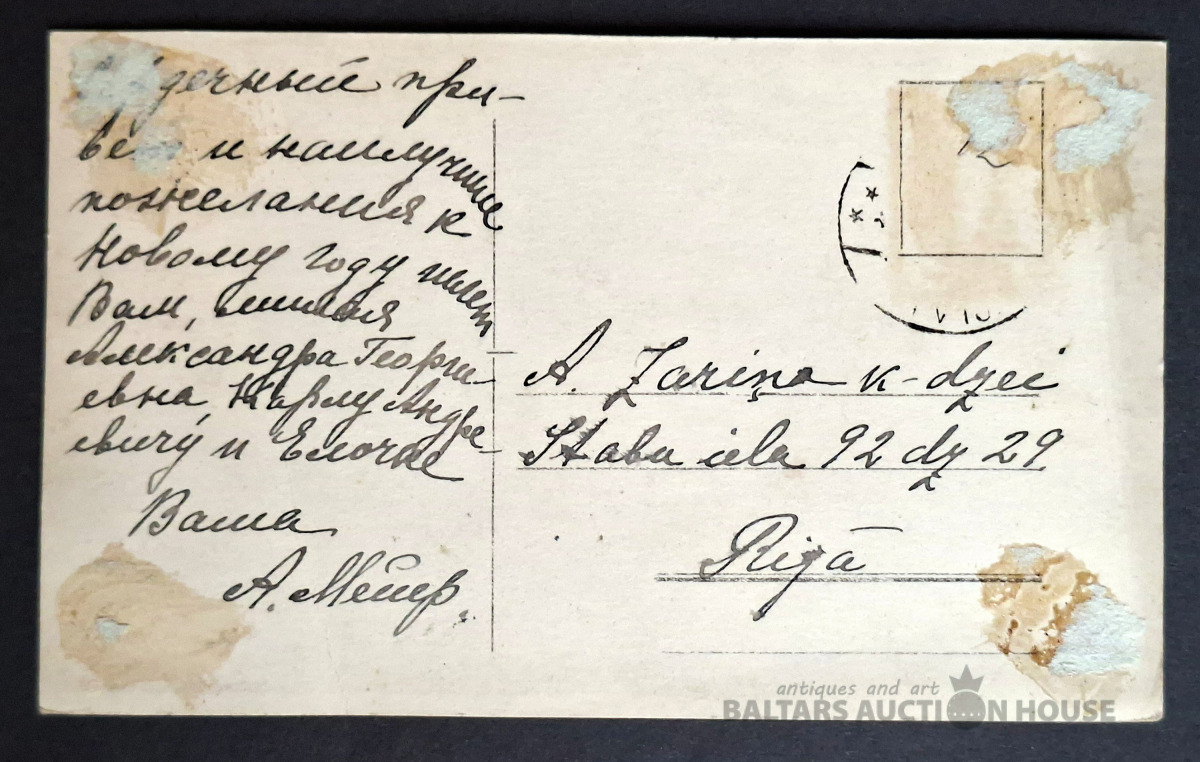 дечный при-
ве и наилучшие
пожелания к
Новому году шлет
Вам, милая
Александра Георги-
евна, Карлу Андре-
евичу и Елочке
Ваша
А. Мейер.
A. Zariņa k-dzei
Stabu iela 92 dz 29
Rīgā
antiques and art
BALTARS AUCTION HOUSE